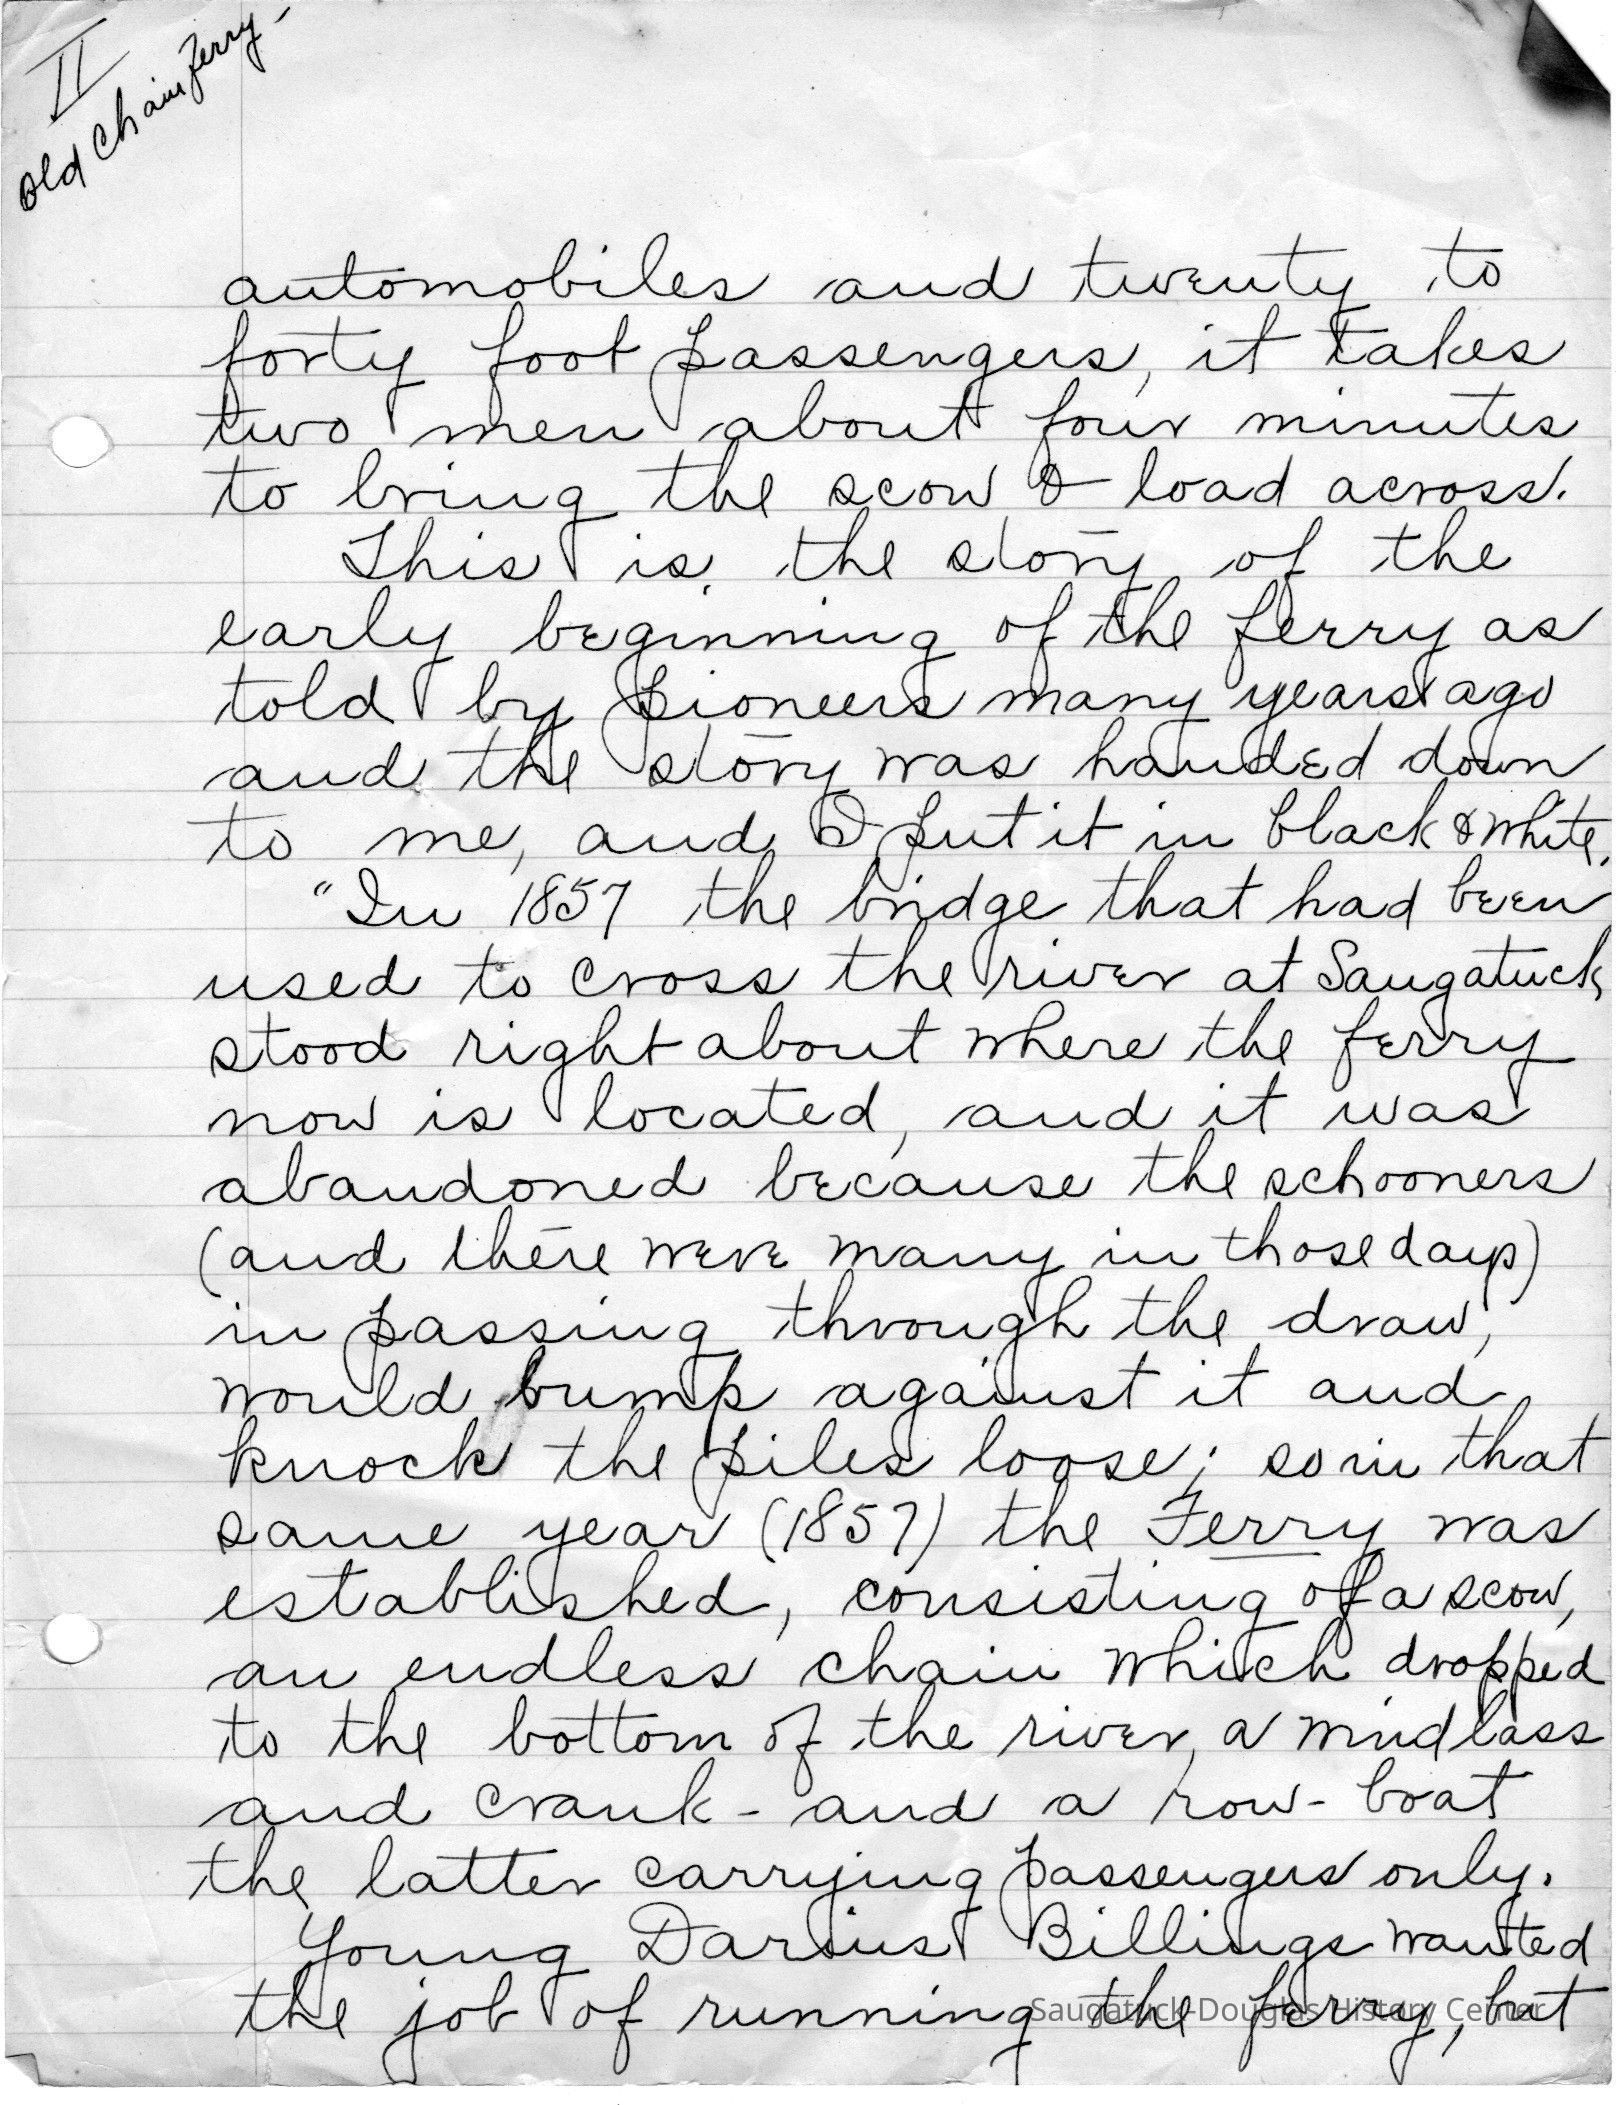 II
Old Chain Ferry -
automobiles and twenty to
forty foot passengers, it takes
two men about four minutes
to bring the scow & load across.
This is the story of the
early beginning of the ferry as
told by pioneers many years ago
and the story was handed down
to me, and I put it in black & white.
"In 1857 the bridge that had been
used to cross the river at Saugatuck,
stood right about where the ferry
now is located, and it was
abandoned because the schooners
(and there were many in those days)
in passing through the draw,
would bump against it and
knock the piles loose; so in that
same year (1857) the Ferry was
established, consisting of a scow,
an endless chain which dropped
to the bottom of the river, a windlass
and crank - and a row-boat
the latter carrying passengers only.
Young Darius Billings wanted
the job of running the ferry, but
Saugatuck-Douglas History Center